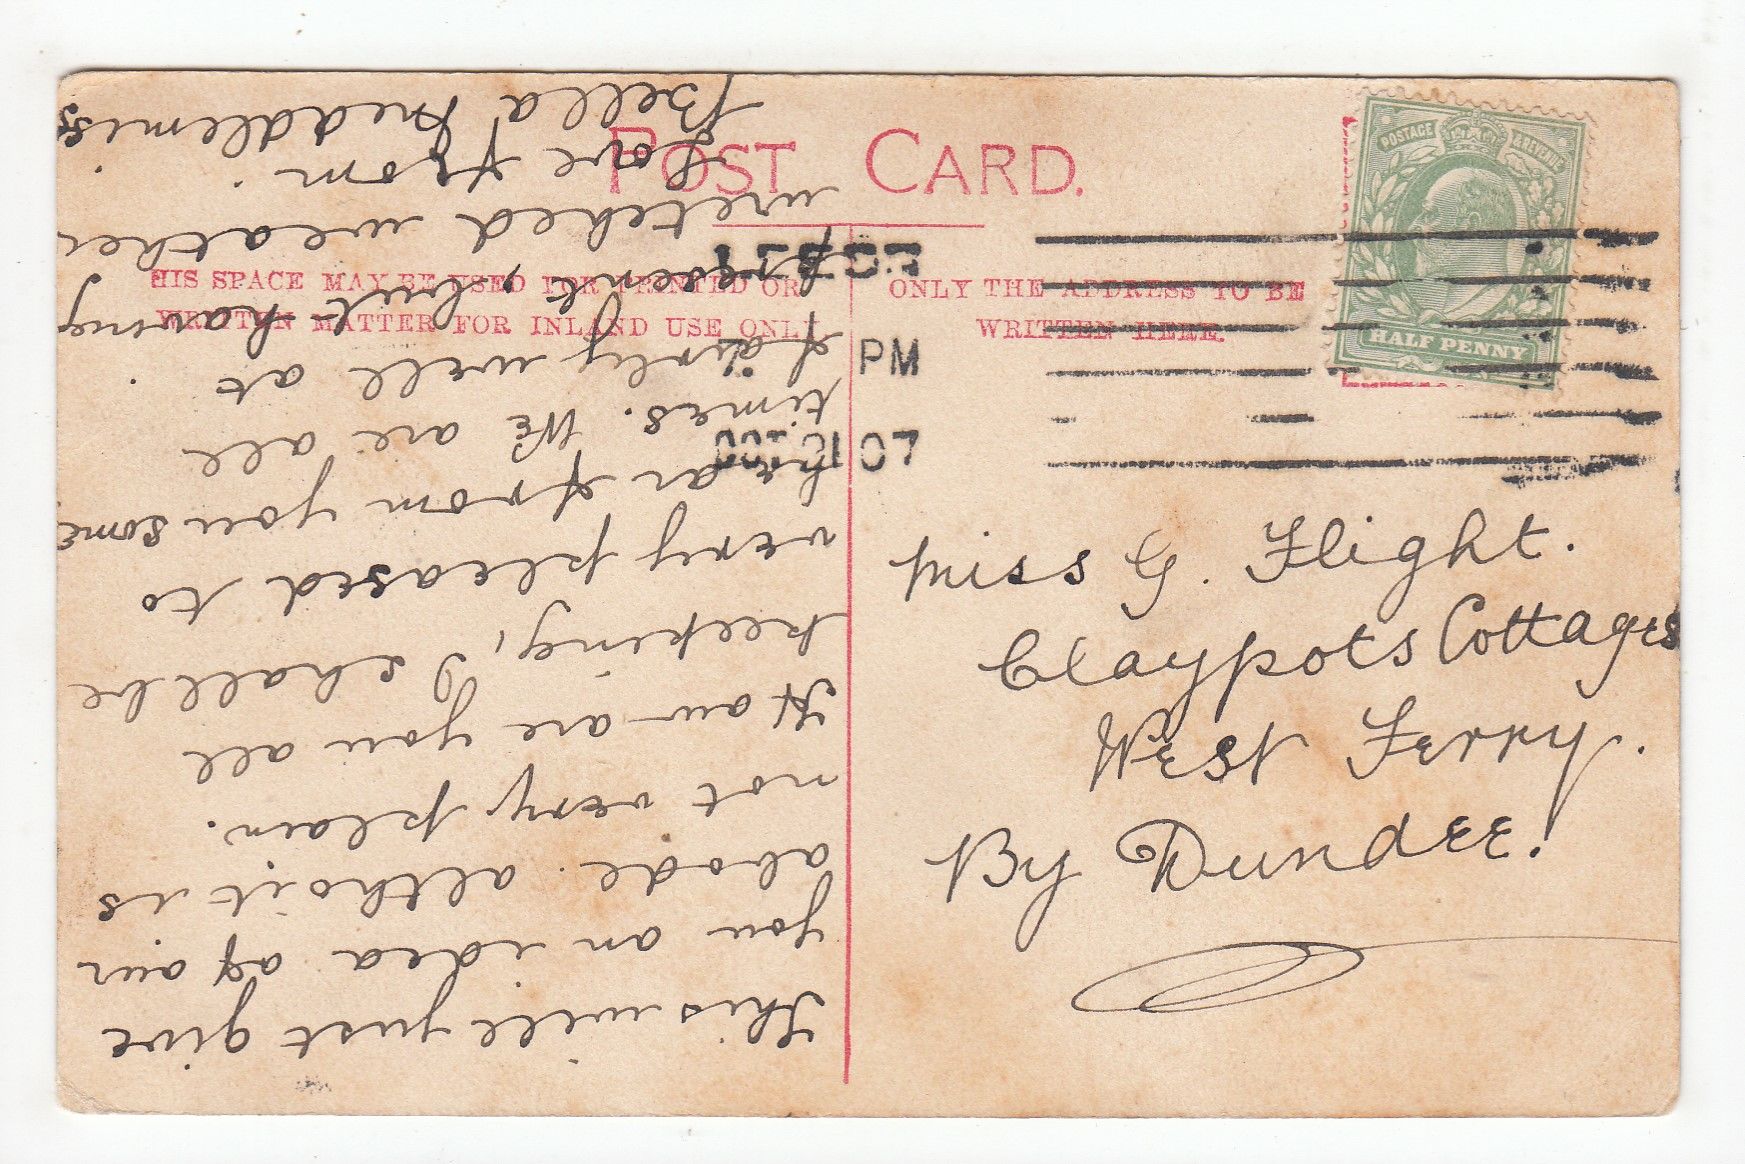 POST CARD.
HIS SPACE MAY BE USED FOR PRINTED OR
WRITTEN MATTER FOR INLAND USE ONLY
ONLY THE ADDRESS TO BE
WRITTEN HERE.
POSTAGE & REVENUE
HALF PENNY
PM
OCT 21 07
Miss G. Flight.
Claypots Cottages
West Ferry.
By Dundee.
This will just give
you an idea of our
abode. altho it is
not very plain.
How are you all
keeping, I shall be
very pleased to
hear from you some
times. We are all
fairly well at
present, but having
wretched weather
Love from
Bella Meddlemiss